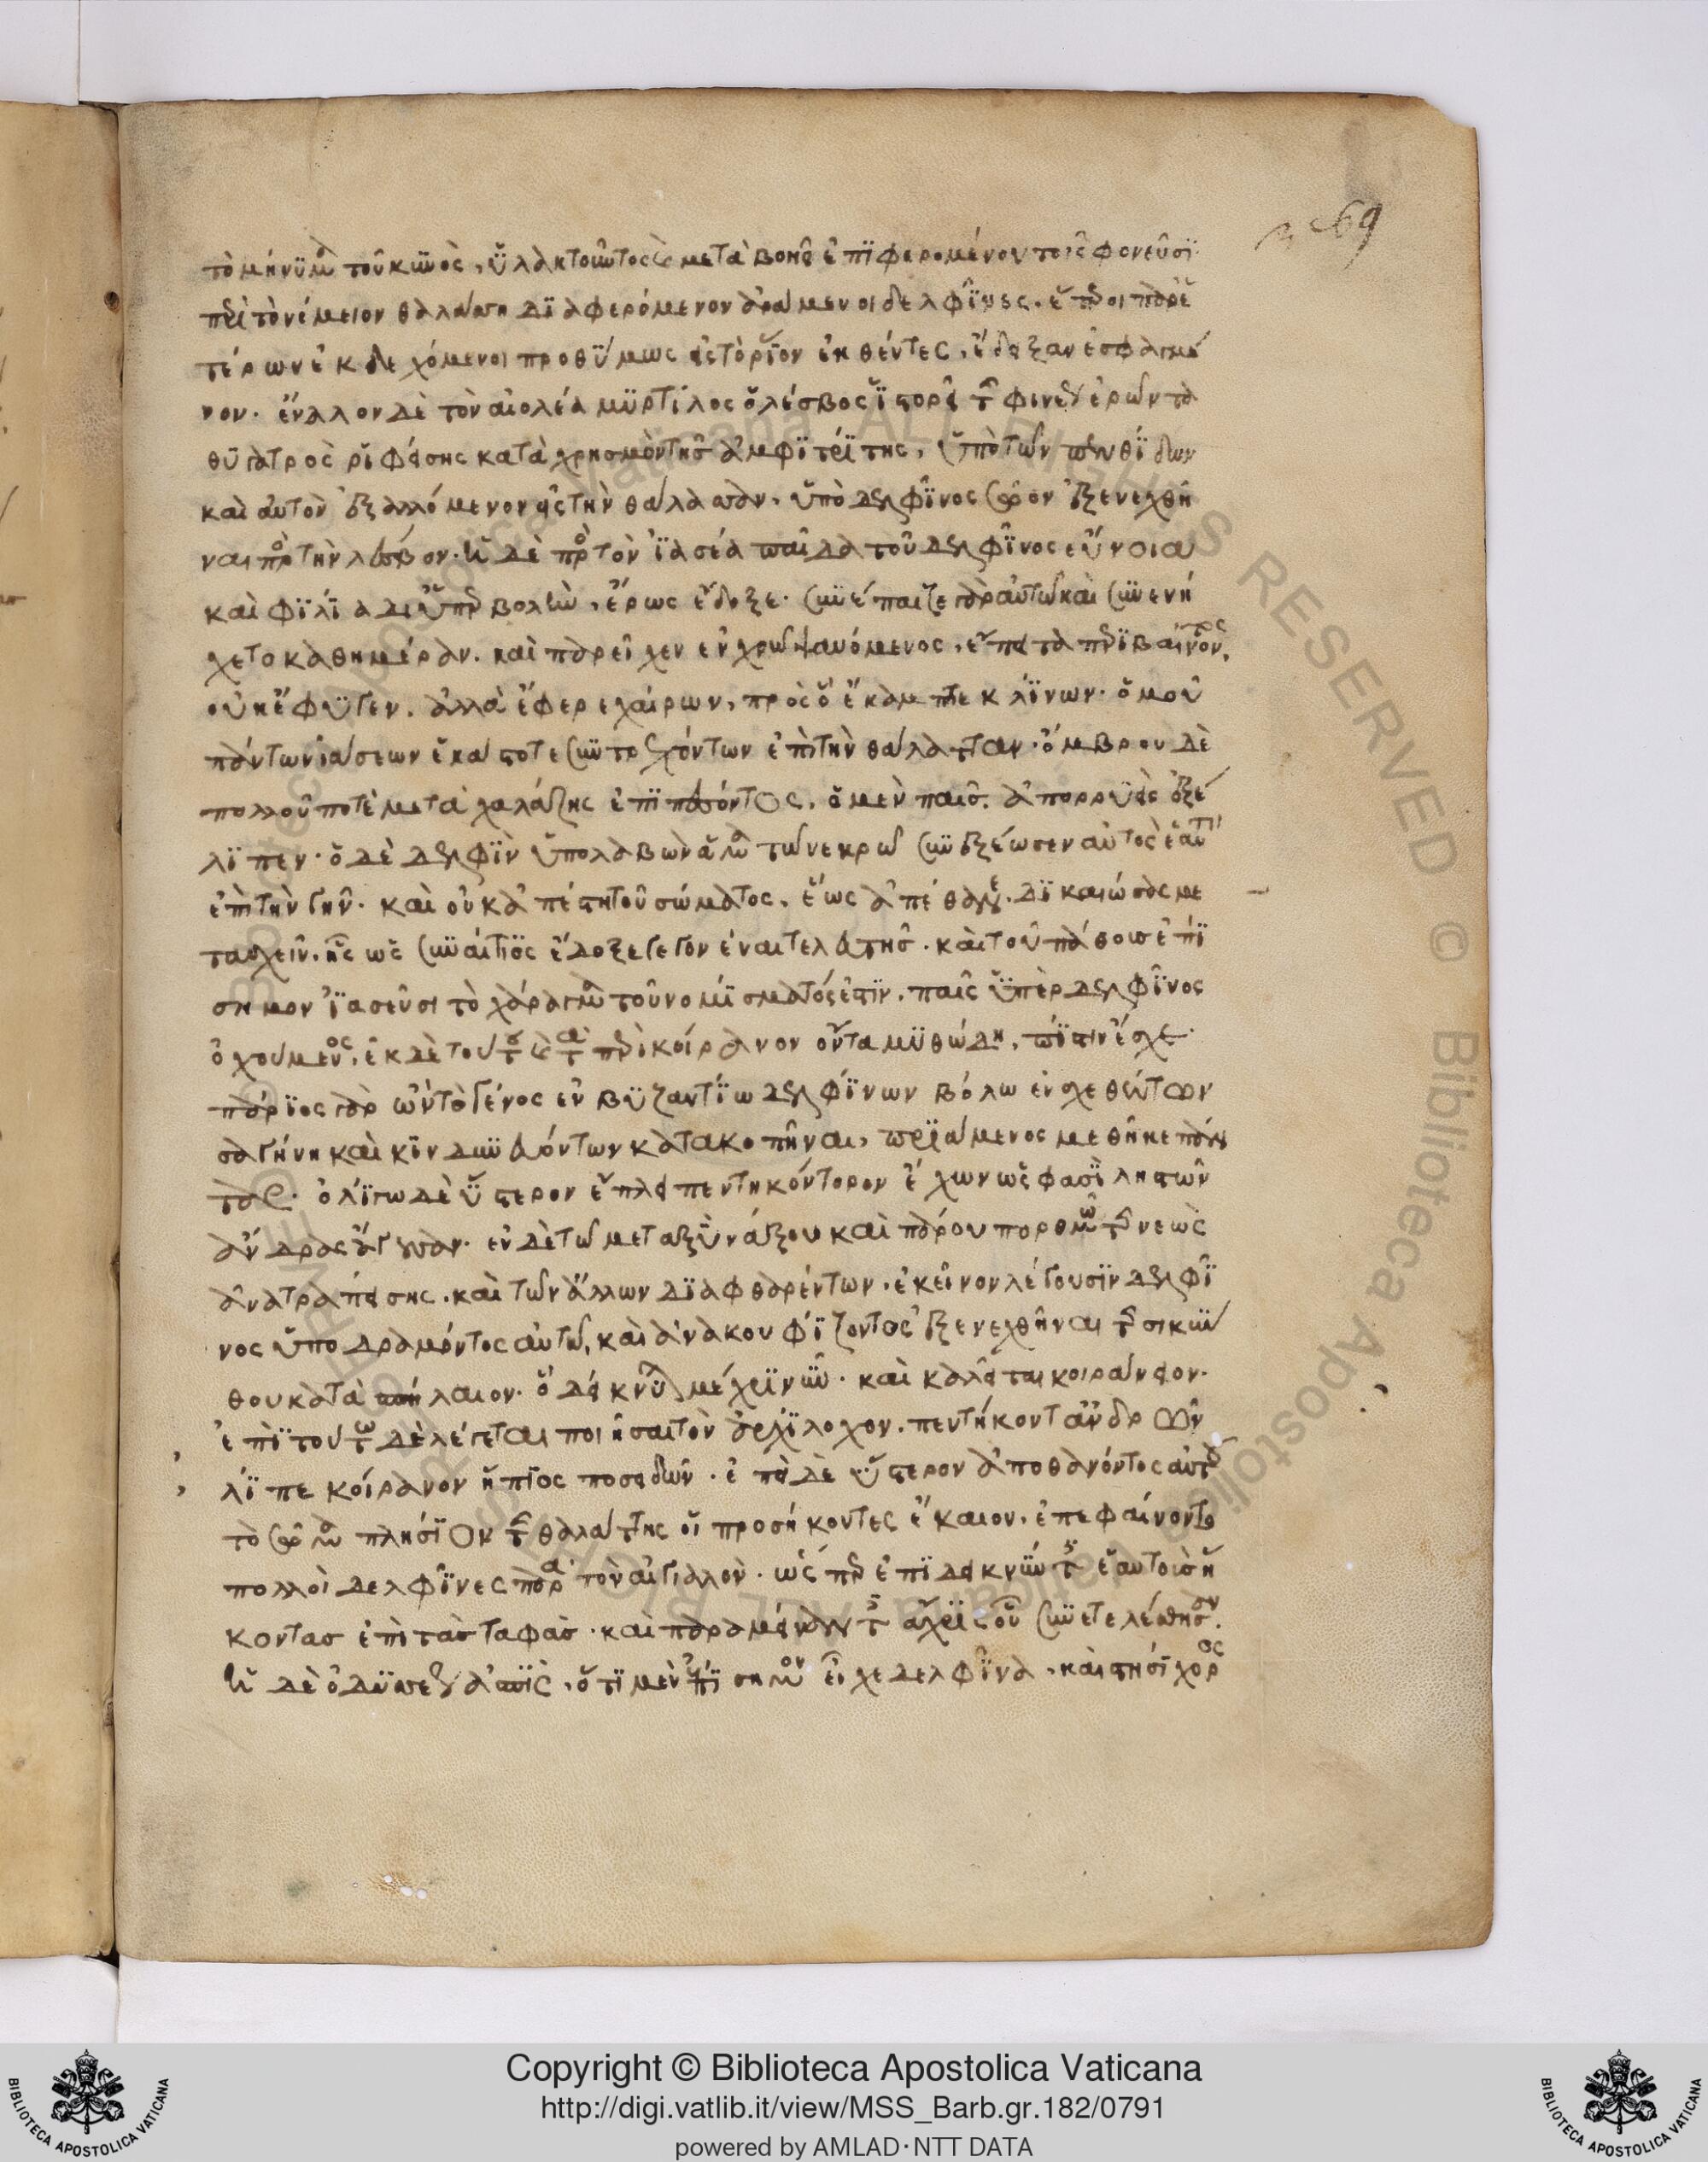 τὸ μήνϋμα τοῦ κϋνὸς, ὕλακτοῦντος καὶ μετὰ βοῆς ἐπϊφερομένου τοῖς φονεῦσϊ·
περὶ τὸ νέμειον θαλάσση δϊαφερόμενον ἀράμενοι δελφῖνες. ἕτεροι παρ ἑ
τέρων ἐκδεχόμενοι προθΰμως εἰς τὸ ῥΐον ἐκθέντες, ἔδειξαν ἐσφαγμέ
νον. ἔναλλον δὲ τὸν αἰολέα μϋρτίλος ὁ λέσβος ἱστορεῖ τῆς φινέως ἐρῶντα
θϋγατρὸς ῥιφείσης κατὰ χρησμὸν τῆς ἀμφϊτρίτης, ὑπὸ τῶν πενθιδων
καὶ αὐτὸν ἐξαλλόμενον εἰς τὴν θάλασσαν, ὑπὸ δελφῖνος σῶον ἐξενεχθῆ
ναι πρὸς τὴν λέσβον. ἡ δὲ πρὸς τὸν ϊασέα παῖδα τοῦ δελφῖνος εὔνοια
καὶ φϊλία δι ὑπερβολὴν, ἔρως ἔδοξε. συνέπαιζε γὰρ αὐτῶ καὶ συνενή
χετο καθημέραν. καὶ παρεῖχεν ἐν χρῶ ψαυόμενος, ἔπειτα περϊβαίνοντος,
οὐκ ἔφϋγεν. ἀλλὰ ἔφερε χαίρων, πρὸς ὃ ἔκαμπτε κλΐνων. ὁμοῦ
πάντων ϊασέων ἑκάστοτε συντρεχόντων ἐπὶ τὴν θάλατταν. ὄμβρου δὲ
πολλοῦ ποτὲ μετὰ χαλάζης ἐπϊπεσόντος. ὁ μὲν παῖς. ἀπορρϋεὶς ἐξέ
λϊπεν. ὁ δὲ δελφῒν ὑπολαβὼν ἅμα τῶ νεκρῶ συνεξέωσεν αὐτὸς ἑαυτὸν
ἐπὶ τὴν γῆν. καὶ οὐκ ἀπέστη τοῦ σώματος, ἕως ἀπέθανε. δϊκαιώσας με
τασχεῖν. ἧς ὡς συναίτϊος ἔδοξε γεγονέναι τελευτῆς. καὶ τοῦ πάθους ἐπΐ
σημον ϊασεῦσι τὸ χάραγμα τοῦ νομΐσματός ἐστϊν. παῖς ὑπὲρ δελφῖνος
ὀχούμενος, ἐκ δὲ τούτου καὶ τὰ περὶ κοίρανον ὄντα μϋθώδη, πΐστιν ἔσχε.
πάρϊος γὰρ ὢν τὸ γένος ἐν βϋζαντΐω δελφΐνων βόλω ἐνσχεθέντων
σαγήνη καὶ κϊνδυνευόντων κατακοπῆναι, πρϊάμενος μεθῆκε πάν
τας. ὀλΐγω δὲ ὕστερον ἔπλει πεντηκόντορον ἔχων ὥς φασϊ ληστῶν
ἄνδρας ἄγουσαν. ἐν δὲ τῶ μεταξὺ νάξου καὶ πάρου πορθμῶ τῆς νεὼς
ἀνατραπείσης. καὶ τῶν ἄλλων δϊαφθαρέντων. ἐκεῖνον λέγουσϊν δελφῖ
νος ὑποδραμόντος αὐτῶ, καὶ ἀνακουφΐζοντος ἐξενεχθῆναι τῆς σικϋν
θου κατὰ σπήλαιον. ὃ δείκνϋται μέχρϊ νῦν. καὶ καλεῖται κοιράνειον.
ἐπῒ τούτω δὲ λέγεται ποιῆσαι τὸν ἀρχΐλοχον. πεντήκοντ ἀνδρῶν
λΐπε κοίρανον ἤπϊος ποσειδῶν. ἐπεὶ δὲ ὕστερον ἀποθανόντος αὐτοῦ
τὸ σῶμα πλησΐον τῆς θαλάττης οἱ προσήκοντες ἔκαιον. ἐπεφαίνοντο
πολλοὶ δελφῖνες παρὰ τὸν αἰγιαλὸν. ὥσπερ ἐπϊδεικνύντες ἑαυτοὺς ἥ
κοντας ἐπὶ τὰς ταφὰς. καὶ παραμείναντες ἄχρϊς οὗ συνετελέσθησαν.
ἡ δὲ ὀδϋσσέως ἀσπὶς, ὅτϊ μὲν ἐπΐσημον εἶχε δελφῖνα, καὶ στησΐχορος